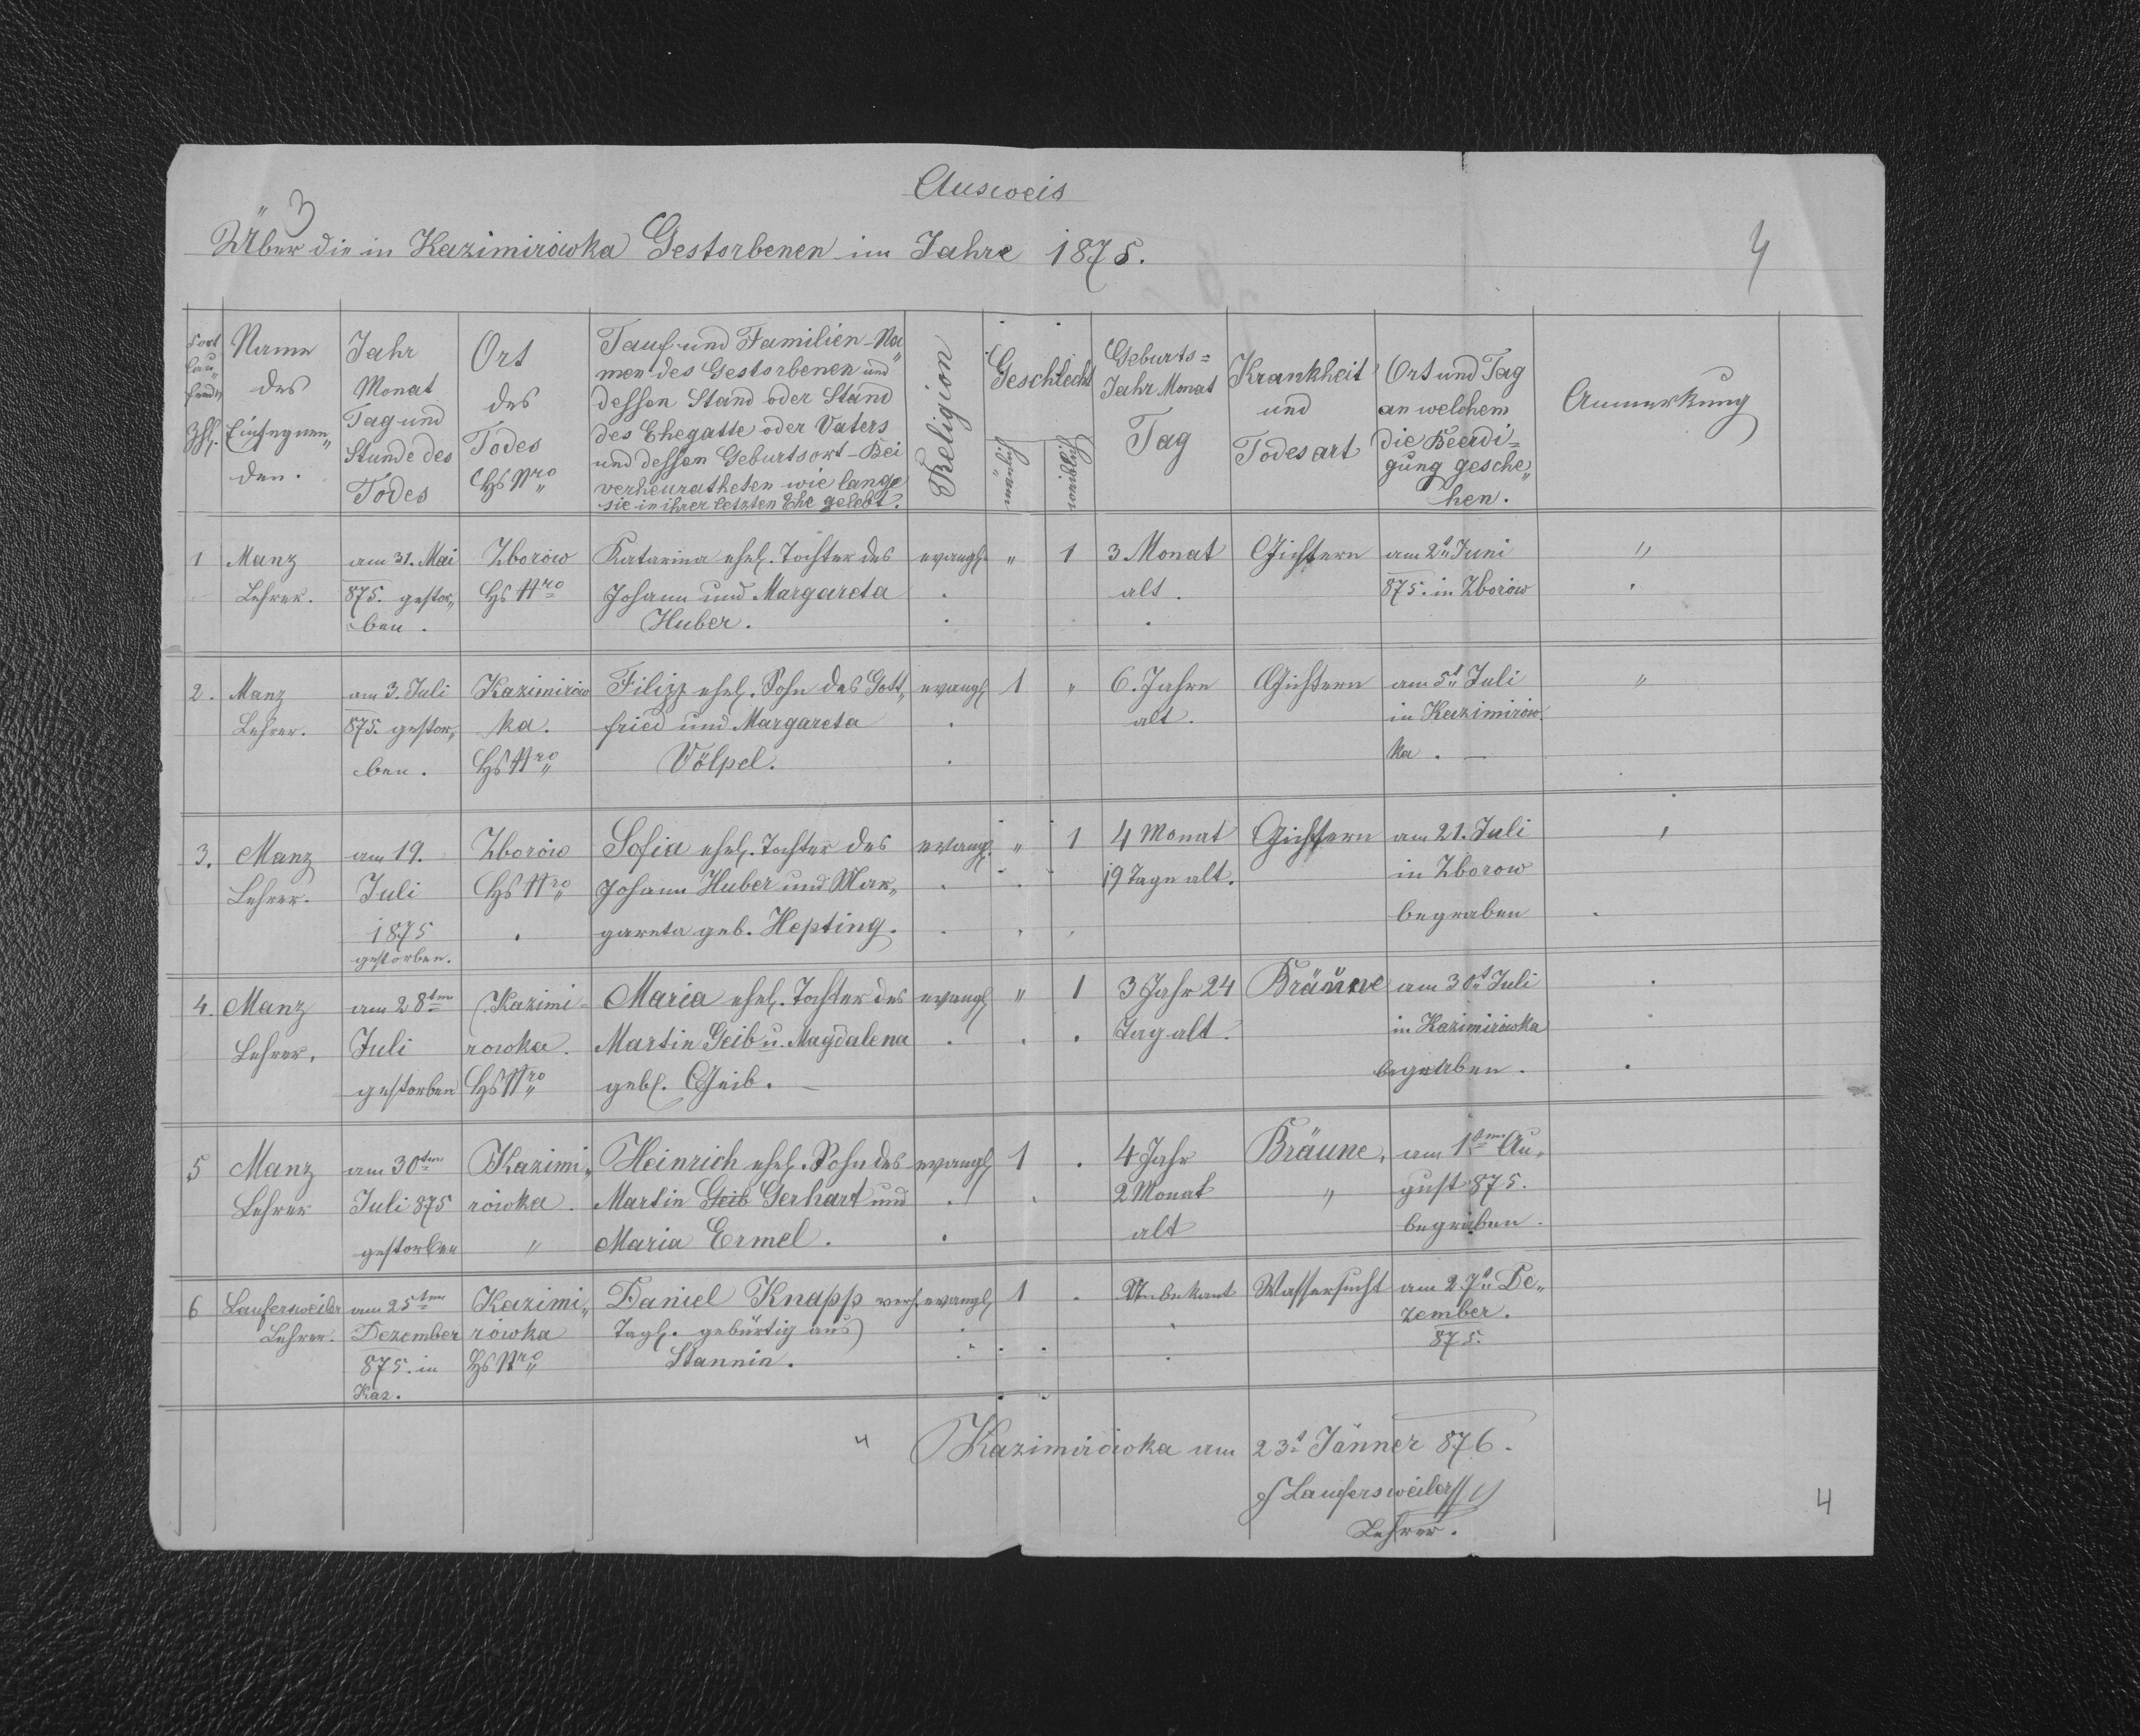 Ausweis
3
Über die in Kazimirówka Gestorbenen im Jahre 1875.
4
Fort
lau„
fende
Zhl.
Name
des
Einsegnen„
den.
Jahr
Monat
Tag und
Stunde des
Todes
Ort
des
Todes
Hs Nro
Tauf und Familien-Na„
men des Gestorbenen und
dessen Stand oder Stand
des Ehegatte oder Vaters
und dessen Geburtsort - Bei
verheuratheten wie lange
sie in ihrer letzten Ehe gelebt.
Religion
Geschlecht
Männli„
Weiblich
Geburts=
Jahr Monat
Tag
Krankheit
und
Todesart
Ort und Tag
an welchem
die Beerdi=
gung gesche„
hen.
Anmerkung
1 Manz am 31. Mai Zborów Katarina ehel. Tochter des evangl. „ 1 3 Monat Gichtern am 2t Juni „
Lehrer. 875. gestor„ Hs Nro Johann und Margareta alt. 875. in Zborów
ben. Huber.
2. Manz am 3. Juli Kazimirów Filipp ehel. Sohn des Gott„ evangl 1 „ 6. Jahre Gichtern am 5t Juli „
Lehrer. 875. gestor„ ka. fried und Margareta alt. in Kazimirów
ben. Hs Nro Völpel. ka. —
3. Manz am 19. Zborów Sofia ehel. Tochter des evang. „ 1 4 Monat Gichtern am 21. Juli
Lehrer. Juli Hs Nro Johann Huber und Mar„ 19 Tage alt. in Zborow
1875 gareta geb. Hepting. begraben
gestorben.
4. Manz am 28ten Kazimi- Maria ehel. Tochter des evangl „ 1 3 Jahr 24 Bräune am 30t Juli
Lehrer. Juli rowka. Martin Geib u. Magdalena Tag alt. in Kazimirówka
gestorben Hs Nro gebl. Geib. — begraben.
5 Manz am 30ten Kazimi„ Heinrich ehel. Sohn des evangl 1 . 4 Jahr Bräune, am 1ten Au„
Lehrer Juli 875 rówka. Martin Geib Gerhart und 2 Monat „ gust 875.
gestorben „ Maria Ermel. alt begraben.
6 Laufersweiler am 25ten Kazimi„ Daniel Knapp verh. evangl 1 . Unbekant Wassersucht am 27t De„
Lehrer. Dezember rówka Tagl. gebürtig aus zember.
875. in Hs Nro Stannin. 875.
Kaz.
4 Kazimirówka am 23t Jänner 876.
Laufersweiler
Lehrer.
4